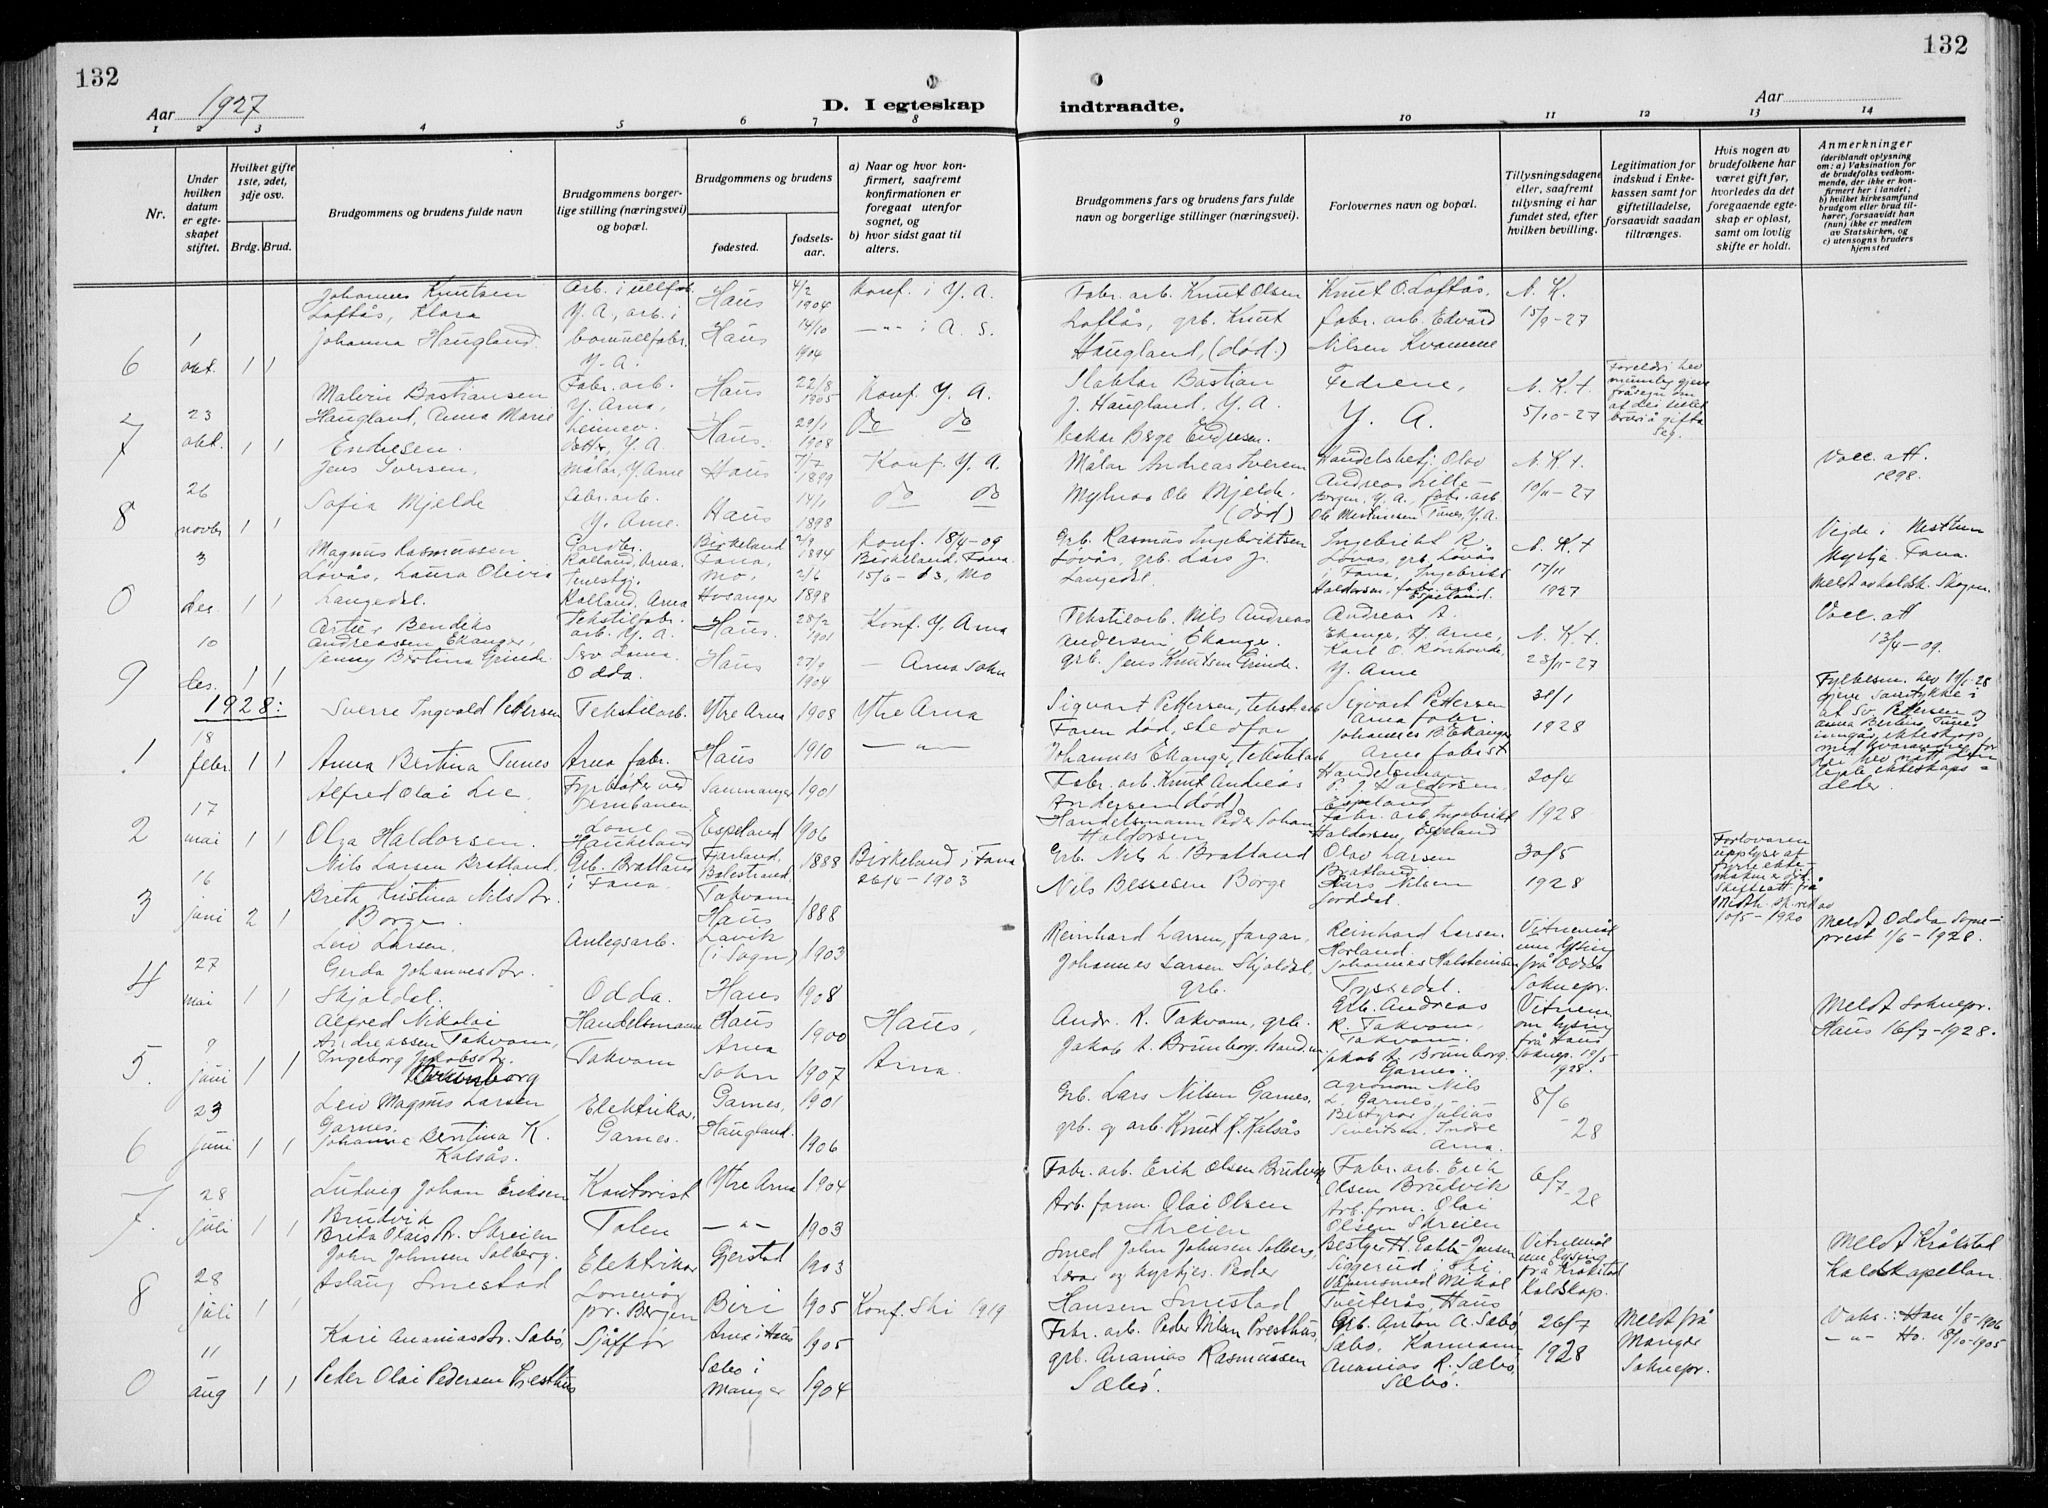 132
132
Aar 1927
D. I egteskap
indtraadte.
Aar
1 2 3 4 5 6 7 8
9 10 11 12 13 14
Nr.
Under hvilken datum er egteskapet stiftet.
Hvilket gifte 1ste, 2det, 3dje osv.
Brdg. Brud.
Brudgommens og brudens fulde navn
Brudgommens borgerlige stilling (næringsvei) og bopæl.
Brudgommens og brudens
fødested.
fødselsaar.
a) Naar og hvor konfirmert, saafremt konfirmationen er foregaat utenfor sognet, og
b) hvor sidst gaat til alters.
Brudgommens fars og brudens fars fulde navn og borgerlige stillinger (næringsvei).
Forlovernes navn og bopæl.
Tillysningsdagene eller, saafremt tillysning ei har fundet sted, efter hvilken bevilling.
Legitimation for indskud i Enkekassen samt for giftetilladelse, forsaavidt saadan tiltrænges.
Hvis nogen av brudefolkene har været gift før, hvorledes da det foregaaende egteskap er opløst, samt om lovlig skifte er holdt.
Anmerkninger
(deriblandt oplysning om: a) Vaksination for de brudefolks vedkommende, der ikke er konfirmert her i landet; b) hvilket kirkesamfund brudgom eller brud tilhører, forsaavidt han (hun) ikke er medlem av Statskirken, og c) utensogns bruders hjemsted
6 1 okt. 1 1
Johannes Knutsen Loftås, Klara Johanna Haugland.
Arb. i ullfabr. Y. A., arb. i bomullfabr. Y. A.
Haus 4/2 1904
Haus 14/10 1904
Konf. i Y. A.
—"— i A. S.
Fabr. arb. Knut Olsen Loftås, grb. Knut Haugland, (død.)
Knut O. Loftås, fabr. arb. Edvard Nilsen Kvamme
N. K. 15/9-27
7 23 okt. 1 1
Malvin Bastiansen Haugland, Anna Marie Endresen.
Fabr. arb. Y. Arna, Y. A.
Haus 22/8 1905
Haus. 29/1 1908
Konf. Y. A.
do do
Slaktar Bastian J. Haugland, Y. A.
Bakar Børge Endresen.
Fedrene, Y. A.
N. K. + 5/10-27
Foreldri hev munnleg gjeve fråsegn om
8 26 novbr 1 1
Jens Iversen, Sofia Mjelde
Målar, Y. Arne fabr. arb. Y. Arne.
Haus 7/7 1899
Haus 14/11 1898
Konf. Y. A.
do do
Målar Andreas Iversen
Mylnar Ole Mjelde. (død)
Handelsbetj. Olav Andreas Lille-Borgen, Y. A., fabr. arb. Ole Martinusen Tunes, Y. A.
N. K +. 10/11-27
Vacc. att. 1898.
0 3 des. 1 1
Magnus Rasmussen Løvås, Laura Olivia Langedal.
Gardbr. Kalland, Arna. Kalland, Arna
Birkeland Fana, 2/9 1894
Mo, Hosanger 2/6 1898
Konf. 18/4-09 Birkeland, Fana.
15/6-13, Mo
Grb. Rasmus Ingebriktsen Løvås, grb. Lars J. Langedal.
Ingebrikt R. Løvås, grb. Løvås i Fana, Ingebrikt Haldorsen, fabr. arb. Espeland.
N. K + 17/11 1927
Vigde i Nesttun Kyrkja. Fana.
9 10 des. 1 1
Artur Bendiks Andreassen Ekanger, Jenny Bertina Grinde.
Tekstilfabr. arb. Y. A. Odda.
Haus. 28/2 1901
Haus 27/9 1904
Konf. Y. Arna
— Arna Sokn
Tekstilarb. Nils Andreas Andersen Ekanger.
grb. Jens Knutsen Grinde.
Andreas A. Ekanger, Y. Arne, Karl O. Rønhovde, Y. Arne
N. K +. 23/11-27
Vacc. att 13/4-09.
1928:
1 18 febr. 1 1
Sverre Ingvald Pettersen
Anna Bertina Tunes
Tekstilarb. Arna fabr.
Ytre Arna 1908
Haus 1910
Ytre Arna
—"—
Sigvart Pettersen, tekst.arb
Faren død, stedfar Johannes Ekanger, tekstilarb
Sigvart Pettersen Arna fabr.
Johannes B Ekanger Arna fabrik
31/1 1928
Fylkesm. hev 19/1-28 gjeve samtykke i at Sv. Pettersen og Anna Bertina Tunes inngår ekteskap med kvarandre før dei hev nått den legale ekteskapsalder.
2 17 mai 1 1
Alfred Olai Lie,
Olga Haldorsen.
Fyrbøter ved Jernbanen. Lone Haukeland
Samnanger 1901
Espeland 1906
Fabr. arb. Knut Andreas Andersen (død)
Handelsmann Peder Johan Haldorsen
Handelsmann P. J. Haldorsen, Espeland
Fabr. arb. Ingebrikt Haldorsen, Espeland
20/4 1928
3 16 juni 2 1
Nils Larsen Bratland,
Breta Kristina Nilsdtr. Borge.
Grb. Bratland i Fana.
Farland, Balestrand. 1888
Takvam Haus 1888
Birkeland i Fana 26/4-1903
Grb. Nils L. Bratland
Nils Bessesen Borge
Olav Larsen Bratland
Lars Nilsen
30/5 1928
Forlovaren upplyser at
10/5-1920
4 27 mai 1 1
Leiv Larsen.
Gerda Johannesdtr. Skjoldal.
Anlegsarb. Odda.
Lavik (i Sogn) 1903
Haus 1908
Reinhard Larsen, fargar,
Johannes Larsen Skjoldal, grb.
Reinhard Larsen. Horland.
Johannes Halsteinsen Tyssedal.
Vitnemål um lysing frå Odda Soknepr.
Meldt Odda Sokneprest 1/6-1928.
5. 9 juni 1 1
Alfred Nikolai Andreassen Takvam,
Ingeborg Jakobsdtr. Brunborg
Handelsmann Takvam
Haus 1900
Arna Sokn 1907
Haus,
Arna.
Andr. R. Takvam, grb.
Jakob A. Brunborg, handm.
Grb. Andreas R. Takvam, Takvam.
Jakob A. Brunborg. Garnes.
Vitnem. om lysing frå Haus Soknepr. 10/5 1928.
Meldt soknepr. Haus 16/7-1928.
6 23 juni 1 1
Leiv Magnus Larsen Garnes.
Johanna Bentina K. Kalsås.
Elektriker, Garnes.
Garnes, 1901
Haugland. 1906
Grb. Lars Nilsen Garnes.
grb. og arb. Knut K. Kalsås
Agronom Nils L. Garnes,
Bestyrar Julius Sivertsen. Indre Arna.
8/6 -28
7. 28 juli 1 1
Ludvig Johan Eriksen Brudvik
Brita Olaisdtr. Skreien
Kontorist Talen
Ytre Arna 1904
—"— 1903
Fabr. arb. Erik Olsen Brudvik
Arb. form. Olai Olsen Skreien
Fabr. arb. Erik Olsen Brudvik
Arb. form. Olai Olsen Skreien
6/7 -28
8 28 juli 1 1
John Johnsen Solberg.
Aslaug Smestad
Elektriker Lonevåg pr. Bergen
Gjerstad 1903
Biri 1905
Konf. Ski 1919
Smed John Johnsen Solberg,
Lærar og kyrkjes. Peder Hansen Smestad
Siggerud i Ski.
Våpensmed Mikal Tveiterås, Haus
Vitnemål um lysing frå Kråkstad Kaldskap.
Meldt Kråkstad Kaldskapellan.
0 11 aug 1 1
Kari Ananiasdtr. Sæbø,
Peder Olai Pedersen Presthus
Sjåfør
Arna i Haus 1905
Sæbø i Manger 1904
Fabr. arb. Peder Nilsen Presthus,
grb. Ananias Rasmussen Sæbø.
Grb. Anton A. Sæbø, Sæbø, Karmann
Ananias R. Sæbø, Sæbø.
26/7 1928
Meldt frå Manger Soknepr.
Vaks.: Han 1/8-1906
—"— Ho. 18/10-1905